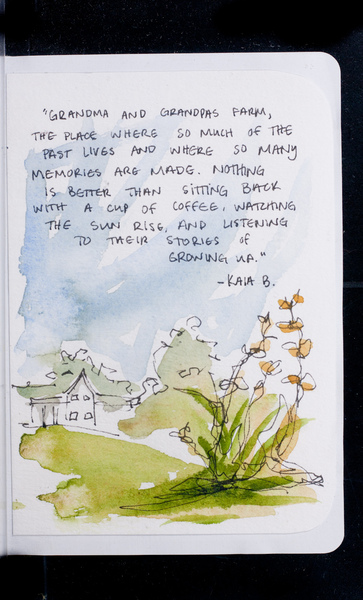 "GRANDMA AND GRANDPAS FARM,
THE PLACE WHERE SO MUCH OF THE
PAST LIVES AND WHERE SO MANY
MEMORIES ARE MADE. NOTHING
IS BETTER THAN SITTING BACK
WITH A CUP OF COFFEE, WATCHING
THE SUN RISE, AND LISTENING
TO THEIR STORIES OF
GROWING UP."
-KAIA B.